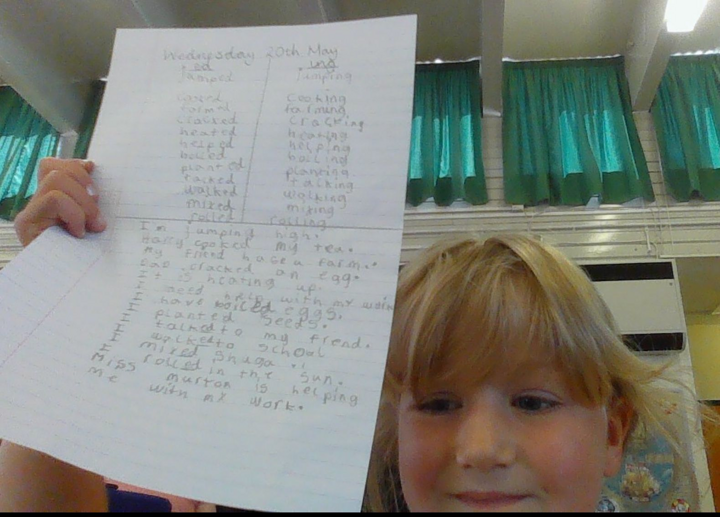 Wednesday 20th May
ed ing
jumped jumping
cooked cooking
farmed farming
cracked cracking
heated heating
helped helping
boiled boiling
planted planting
talked talking
walked walking
mixed mixing
rolled rolling
I'm jumping high.
cooked my tea.
My friend have a farm.
Dad cracked an egg.
It is heating up.
I need help with my
I have boiled eggs.
I planted seeds.
I talked to my friend.
I walked to school
I mixed shuga
I rolled in the sun.
Miss murton is helping
me with my work.